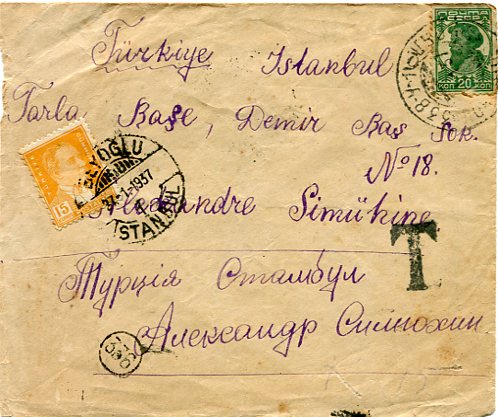 Türkiye Istanbul
Tarla Başe, Demir Baş Sok.
No 18.
Alexandre Simükine
Турція Стамбул
Александр Симюхин
T
ПОЧТА
20 КОП 20
15
BEYOĞLU
-1-1937
ISTANBUL